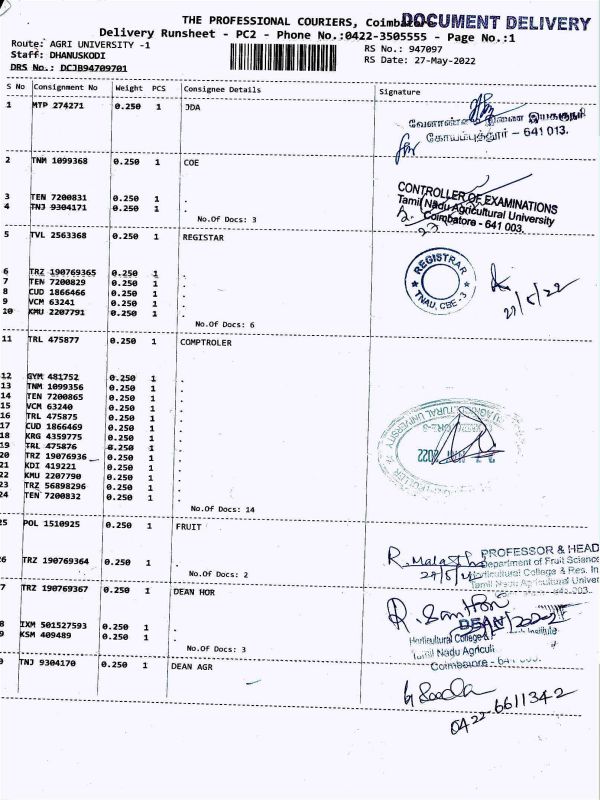 THE PROFESSIONAL COURIERS, Coimbatore
DOCUMENT DELIVERY
Delivery Runsheet - PC2 - Phone No.:0422-3505555 - Page No.:1
Route: AGRI UNIVERSITY -1
RS No.: 947097
Staff: DHANUSKODI
RS Date: 27-May-2022
DRS No.: DCJB94709701
S No Consignment No Weight PCS Consignee Details Signature
1 MTP 274271 0.250 1 JDA
வேளாண்மை இணை இயக்குநர்
கோயம்புத்தூர் - 641 013.
2 TNM 1099368 0.250 1 COE
3 TEN 7200831 0.250 1 .
4 TNJ 9304171 0.250 1 .
No.Of Docs: 3
CONTROLLER OF EXAMINATIONS
Tamil Nadu Agricultural University
Coimbatore - 641 003.
5 TVL 2563368 0.250 1 REGISTAR
6 TRZ 190769365 0.250 1 .
7 TEN 7200829 0.250 1 .
8 CUD 1866466 0.250 1 .
9 VCM 63241 0.250 1 .
10 KMU 2207791 0.250 1 .
No.Of Docs: 6
REGISTRAR
TNAU, CBE - 3
27/5/22
11 TRL 475877 0.250 1 COMPTROLER
12 GYM 481752 0.250 1 .
13 TNM 1099356 0.250 1 .
14 TEN 7200865 0.250 1 .
15 VCM 63240 0.250 1 .
16 TRL 475875 0.250 1 .
17 CUD 1866469 0.250 1 .
18 KRG 4359775 0.250 1 .
19 TRL 475876 0.250 1 .
20 TRZ 19076936 0.250 1 .
21 KDI 419221 0.250 1 .
22 KMU 2207790 0.250 1 .
23 TRZ 56898296 0.250 1 .
24 TEN 7200832 0.250 1 .
No.Of Docs: 14
2022
25 POL 1510925 0.250 1 FRUIT
26 TRZ 190769364 0.250 1 .
No.Of Docs: 2
PROFESSOR & HEAD
Department of Fruit Science
Horticultural College & Res. In
Tamil Nadu Agricultural Univer
7 TRZ 190769367 0.250 1 DEAN HOR
8 IXM 501527593 0.250 1 .
9 KSM 409489 0.250 1 .
No.Of Docs: 3
DEAN
Horticultural College & Institute
Tamil Nadu Agricul
Coimbatore - 641 003.
0 TNJ 9304170 0.250 1 DEAN AGR
0422-6611342